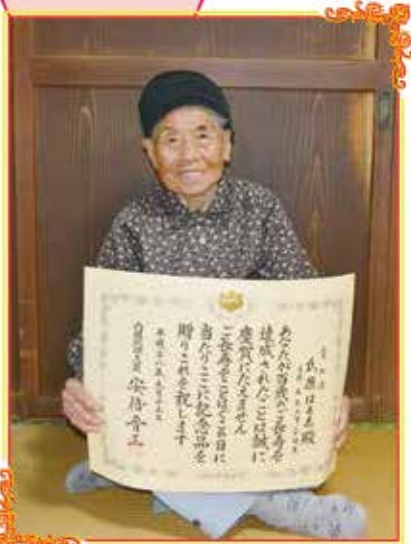 殿
あなたが百歳のご長寿を
達成されたことは誠に
慶賀にたえません
ご長寿をことほぐ本日に
当たりここに記念品を
贈りこれを祝します
内閣総理大臣 安倍晋三